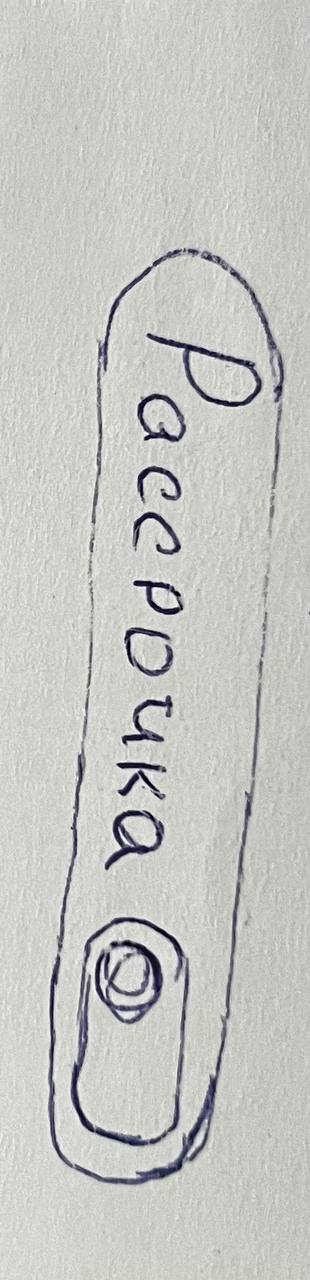 Рассрочка